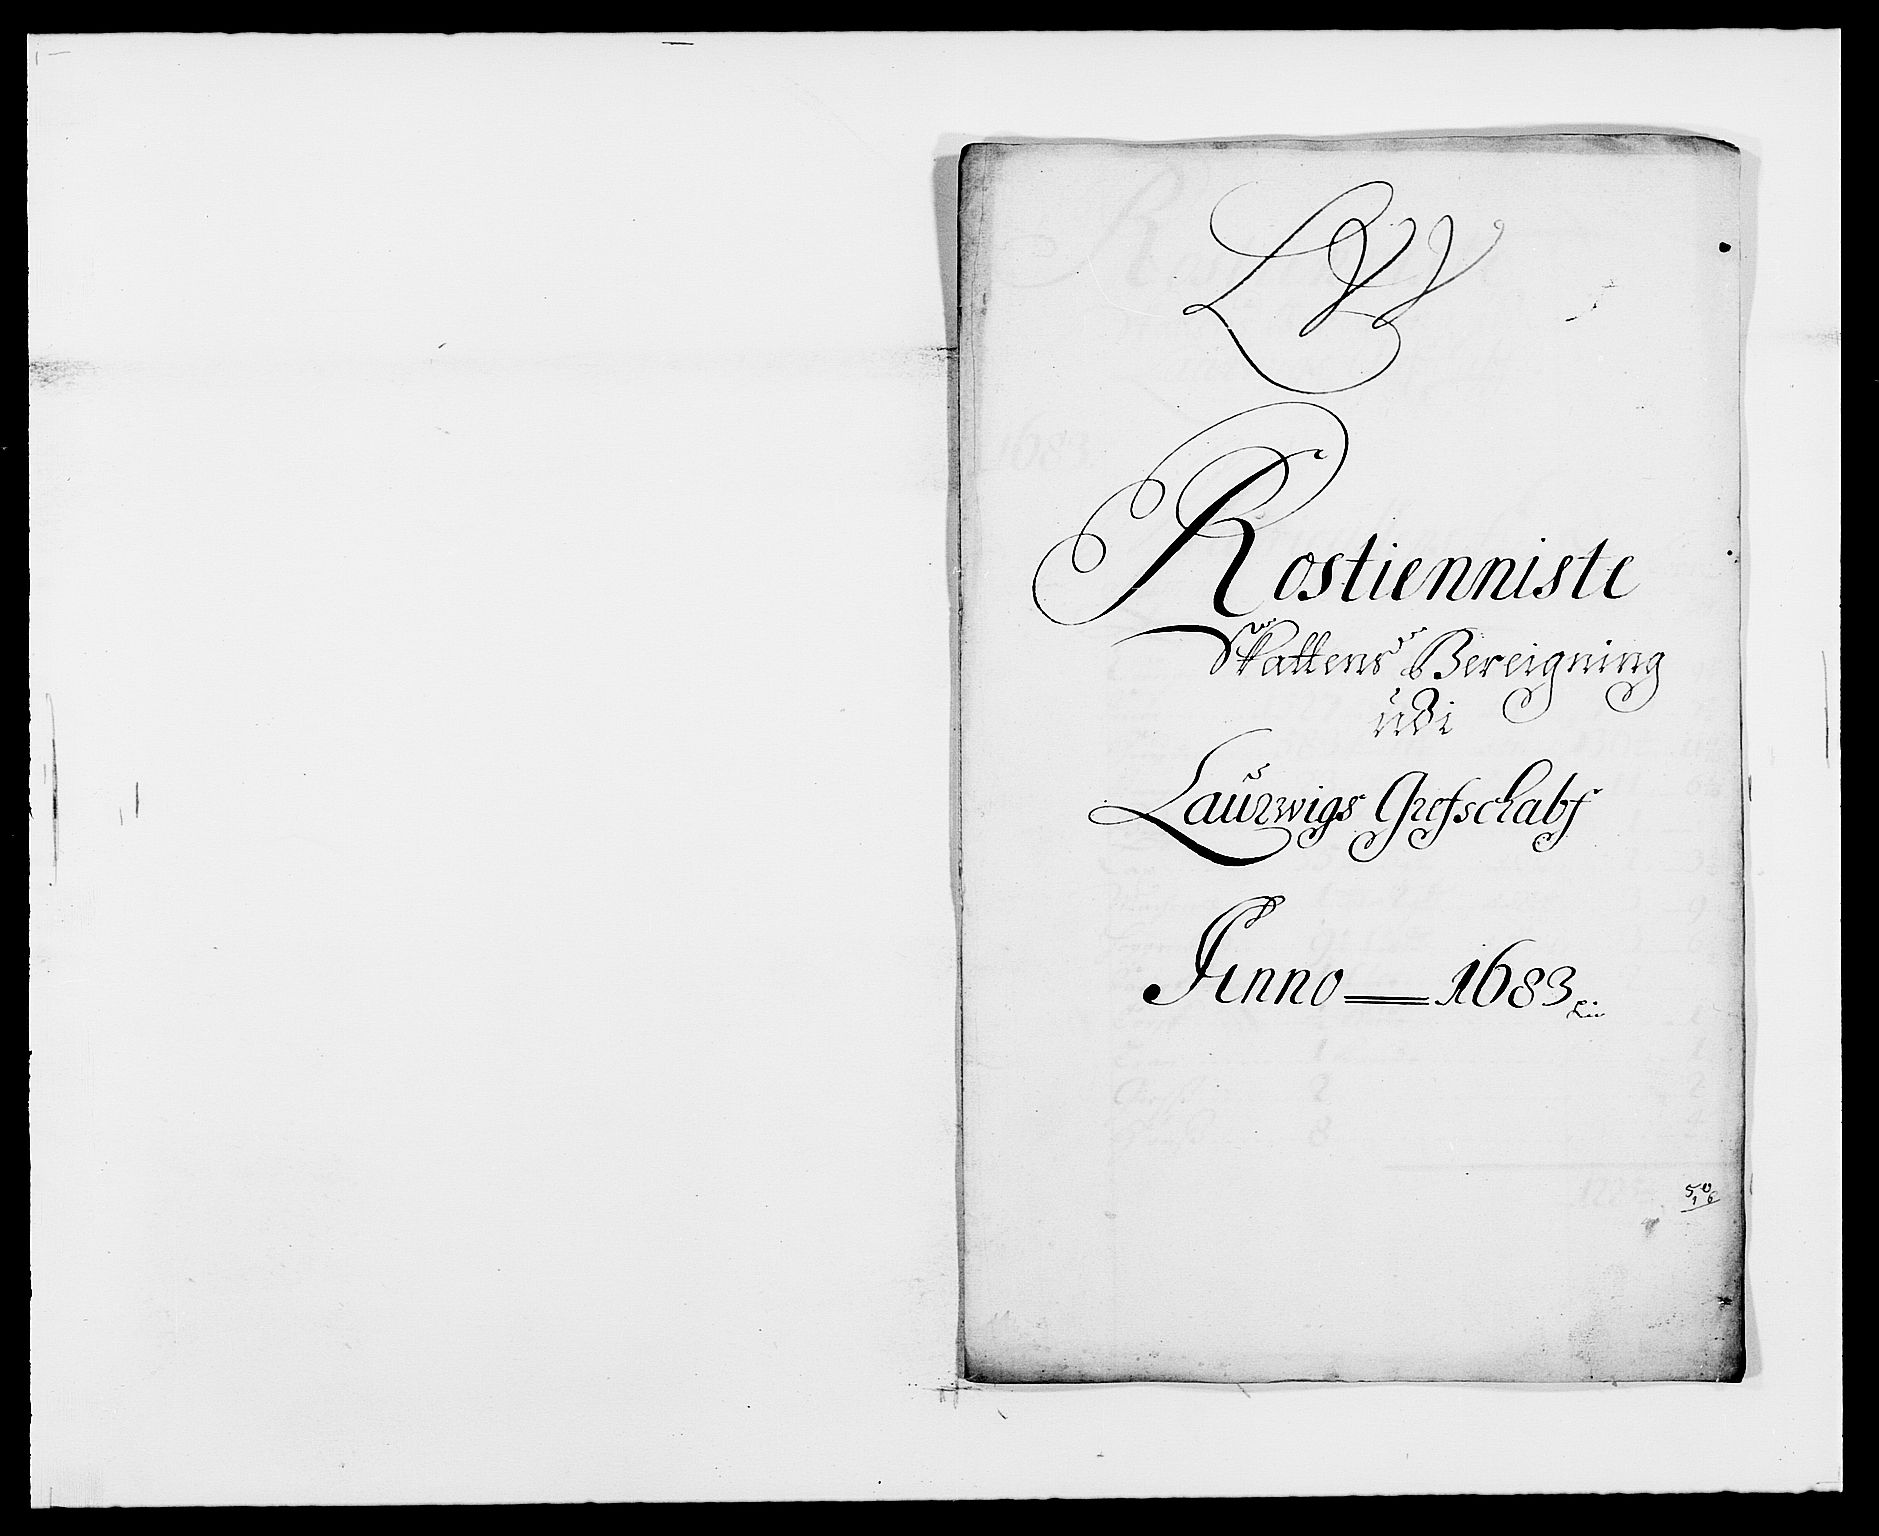 LW
Rostienniste
Skattens Bereigning
udi
Laurwigs Grefschabs
Anno 1683